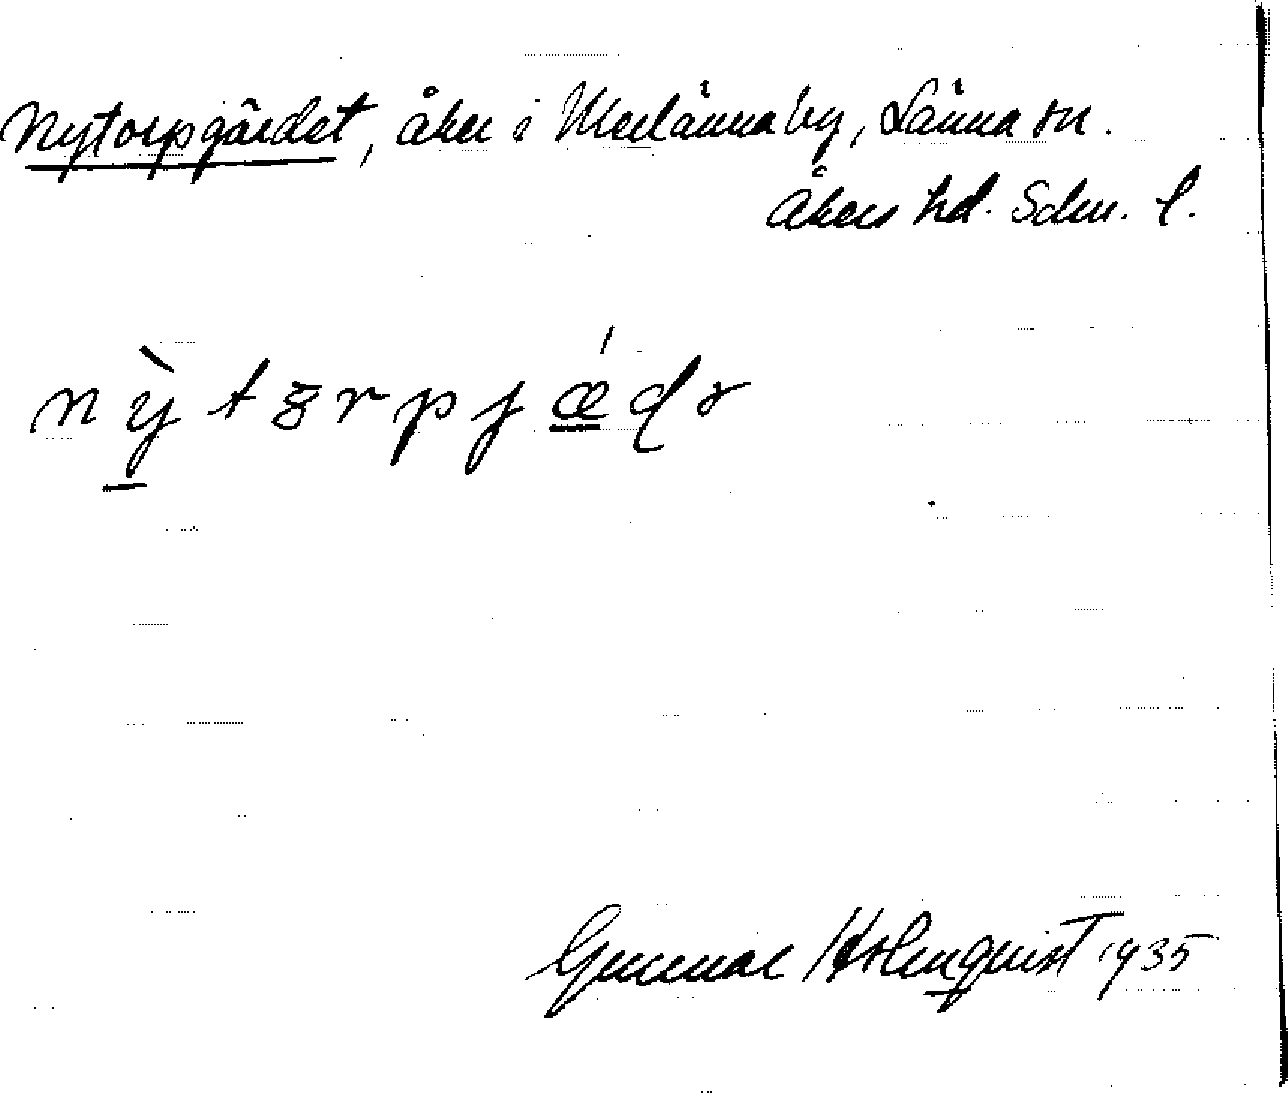 Nytorpgärdet, åker i Merlänna by, Länna sn.
Åkers hd. Sdm. l.
nỳtꜿrpjǽdə
Gunnar Holmquist 1935